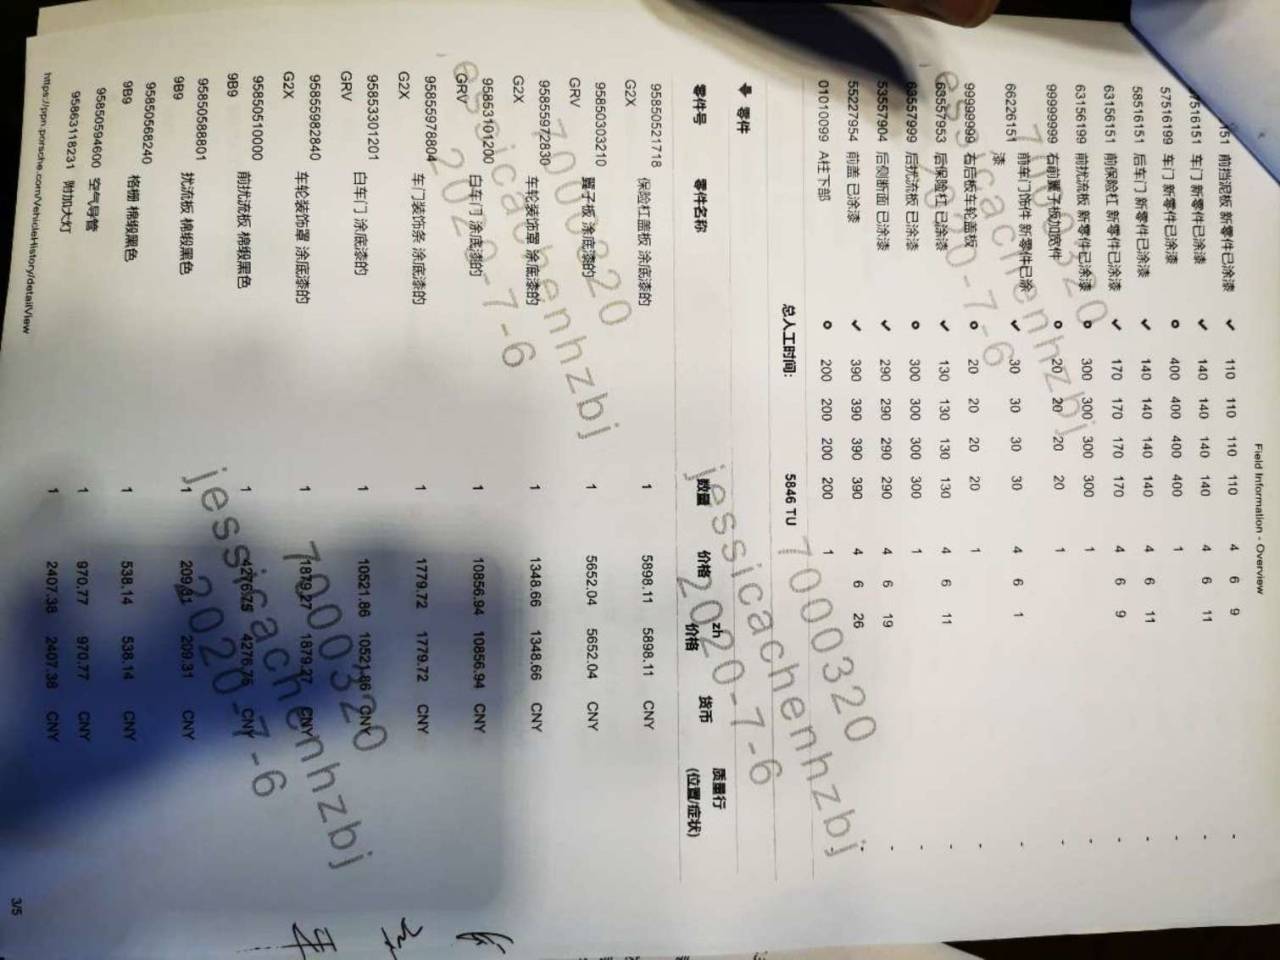 Field Information - Overview
151 前挡泥板 新零件已涂漆 ✓ 110 110 110 110 4 6 9 -
7516151 车门 新零件已涂漆 ✓ 140 140 140 140 4 6 11 -
57516199 车门 新零件已涂漆 o 400 400 400 400 1 -
58516151 后车门 新零件已涂漆 ✓ 140 140 140 140 4 6 11 -
63156151 前保险杠 新零件已涂漆 ✓ 170 170 170 170 4 6 9 -
63156199 前扰流板 新零件已涂漆 o 300 300 300 300 1 -
99999999 右前翼子板加宽件 o 20 20 20 20 1 -
66226151 前车门饰件 新零件已涂漆 ✓ 30 30 30 30 4 6 1 -
99999999 右后板车轮盖板 o 20 20 20 20 1 -
63557953 后保险杠 已涂漆 ✓ 130 130 130 130 4 6 11 -
63557999 后扰流板 已涂漆 o 300 300 300 300 1 -
53557904 后侧断面 已涂漆 ✓ 290 290 290 290 4 6 19 -
55227954 前盖 已涂漆 ✓ 390 390 390 390 4 6 26 -
01010099 A柱下部 o 200 200 200 200 1
总人工时间: 5846 TU
零件
零件号 零件名称 数量 价格 zh 价格 货币 质量行 (位置/症状)
95850521718 G2X 保险杠盖板 涂底漆的 1 5898.11 5898.11 CNY
95850303210 GRV 翼子板 涂底漆的 1 5652.04 5652.04 CNY
95855972830 G2X 车轮装饰罩 涂底漆的 1 1348.66 1348.66 CNY
95863101200 GRV 白车门 涂底漆的 1 10856.94 10856.94 CNY
95855978804 G2X 车门装饰条 涂底漆的 1 1779.72 1779.72 CNY
95853301201 GRV 白车门 涂底漆的 1 10521.86 10521.86 CNY
95855982840 G2X 车轮装饰罩 涂底漆的 1 1879.27 1879.27 CNY
95850510000 9B9 前扰流板 棉缎黑色 1 4276.75 4276.75 CNY
95850588801 9B9 扰流板 棉缎黑色 1 209.31 209.31 CNY
95850568240 9B9 格栅 棉缎黑色 1 538.14 538.14 CNY
95850594600 空气导管 1 970.77 970.77 CNY
95863118231 附加大灯 1 2407.38 2407.38 CNY
https://ppn.porsche.com/VehicleHistory/detailView
3/5
7000320
jessicachenhzbj
2020-7-6
7000320
jessicachenhzbj
2020-7-6
7000320
jessicachenhzbj
2020-7-6
7000320
jessicachenhzbj
2020-7-6